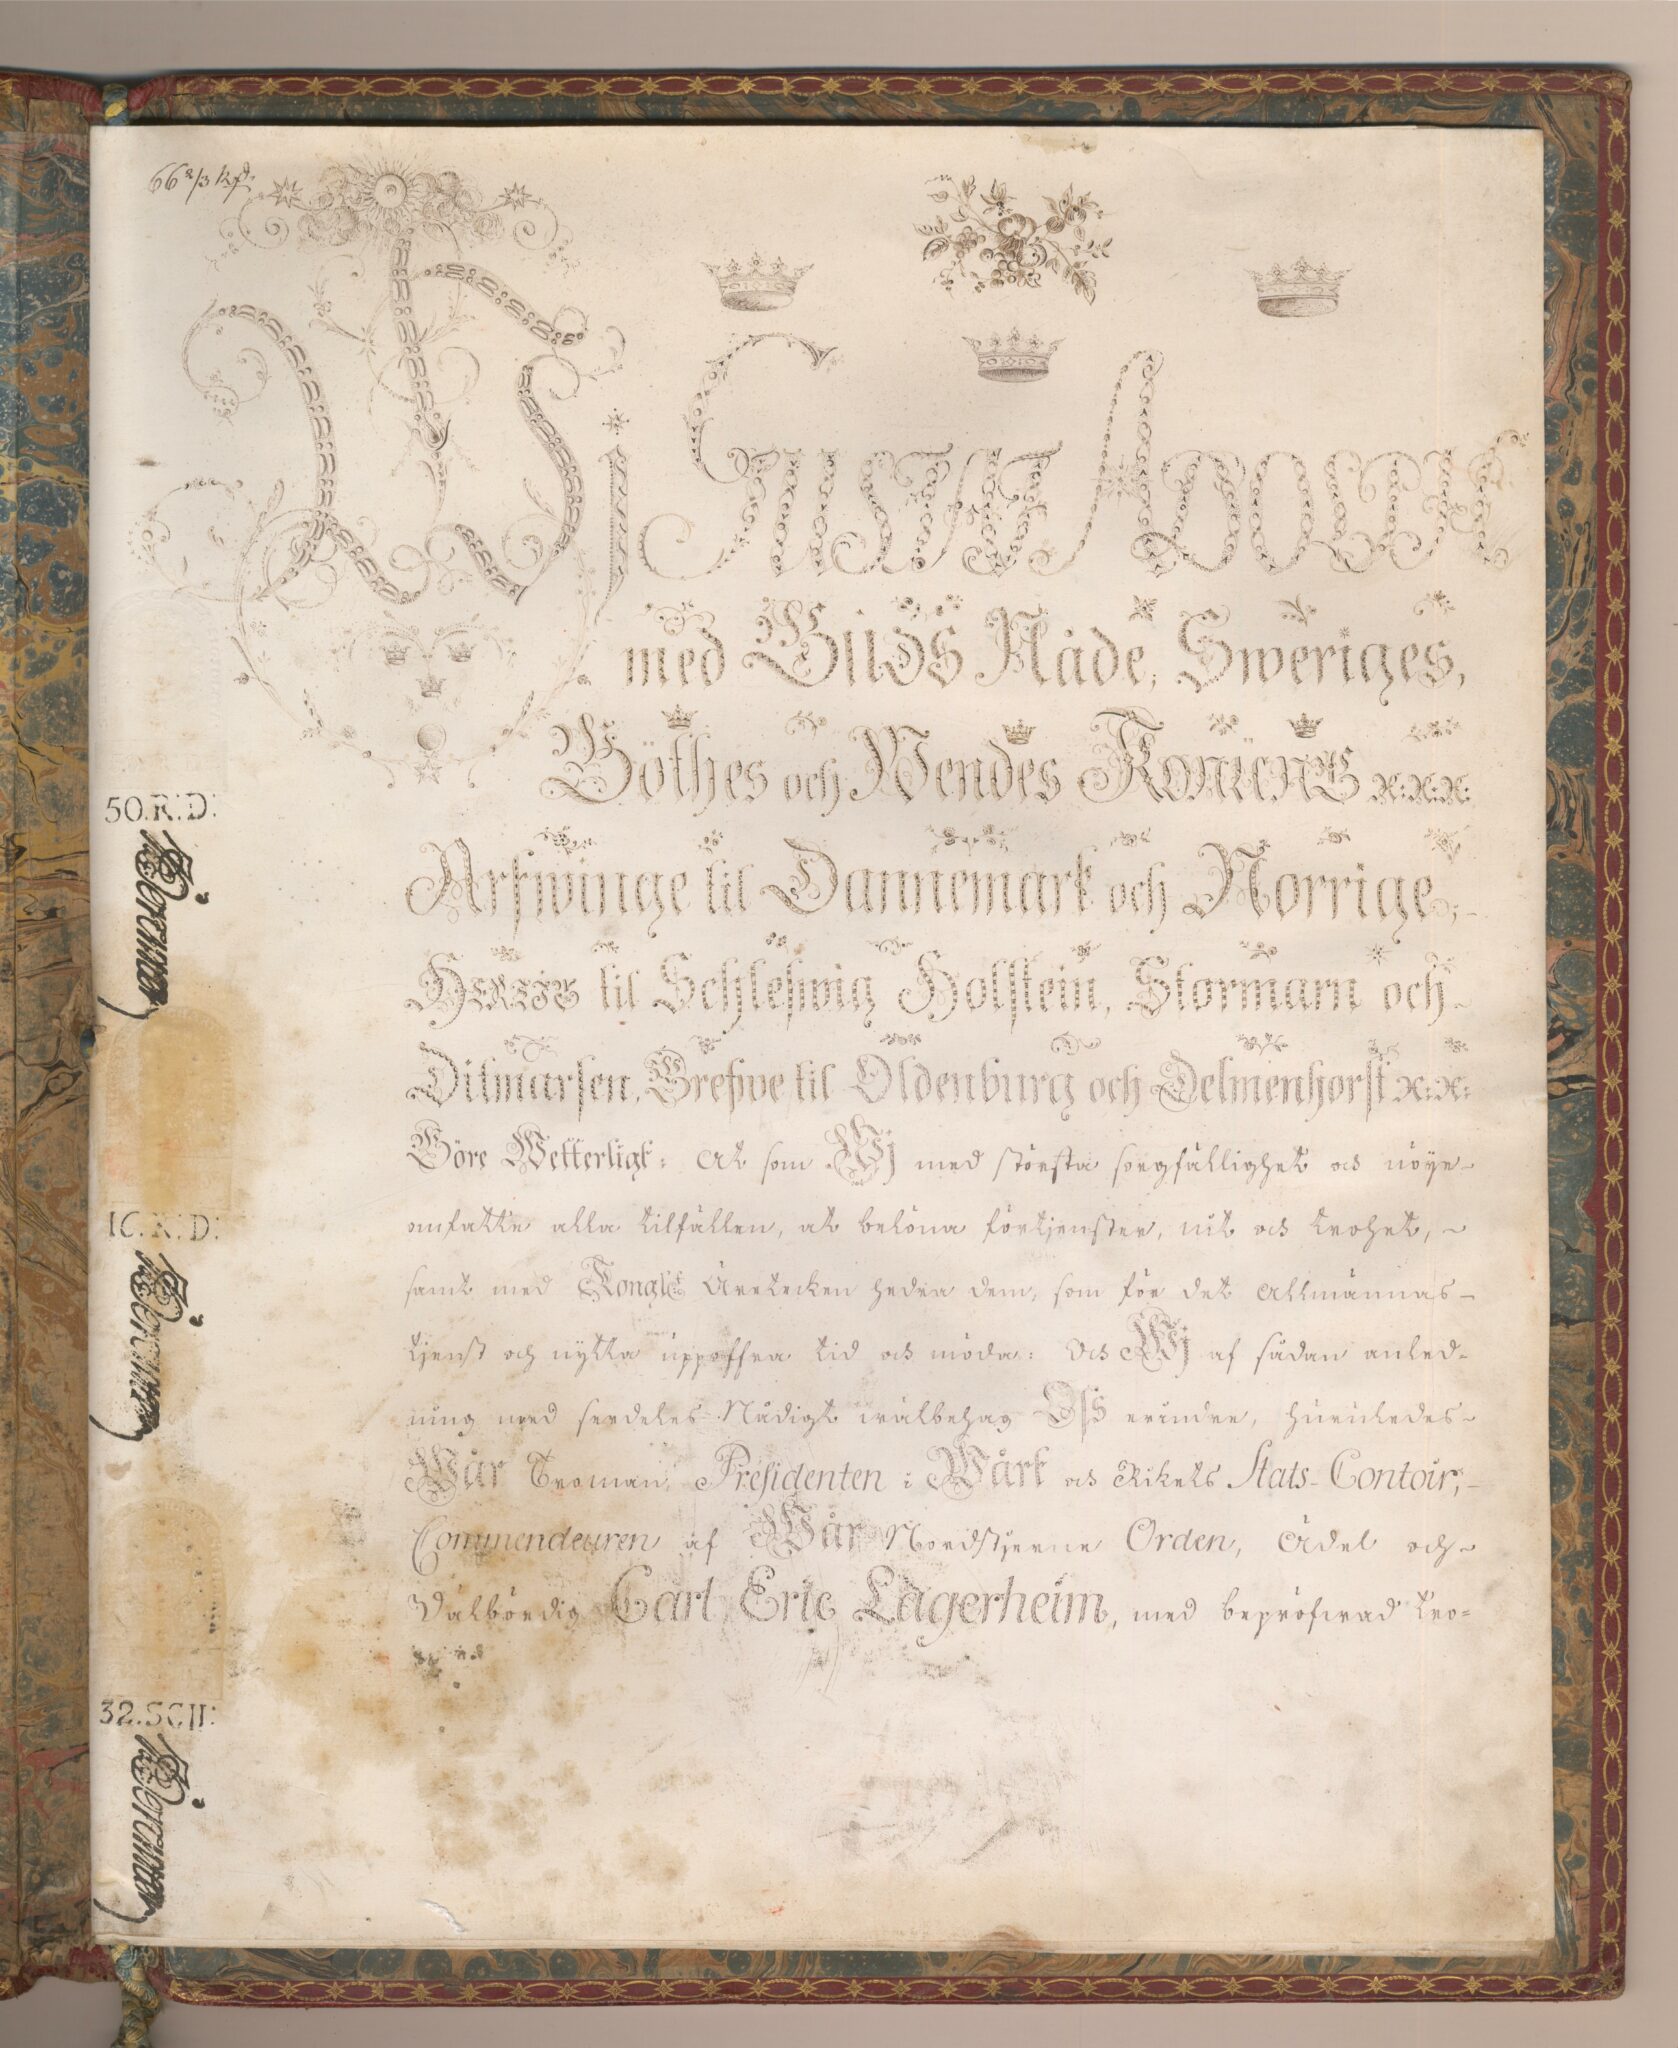 66 2/3 Rd.
Wj Gustaf Adolph
med Guds Nåde, Sweriges,
Göthes och Wendes Konung &c. &c. &c.
Arfwinge til Dannemark och Norrige,
Hertig til Schleswig Holstein, Stormarn och
Ditmarsen, Grefwe til Oldenburg och Delmenhorst &c. &c.
Göre Wetterligt: At som Wj med största sorgfällighet och nöye
omfatte alla tilfällen, at belöna förtjenster, nit och trohet,
samt med Kongl. Äretecken hedra dem, som för det Allmännas
tjenst och nytta uppoffra tid och möda: Och Wj af sådan anled-
ning med serdeles Nådigt wälbehag Oss erindre, huruledes
Wår Troman, Presidenten i Wårt och Rikets Stats-Contoir,
Commendeuren af Wår Nordstjerne Orden, Ädel och
Välbördig Carl Eric Lagerheim, med bepröfwad tro-
50. R: D:
10. R: D:
32. SCH: